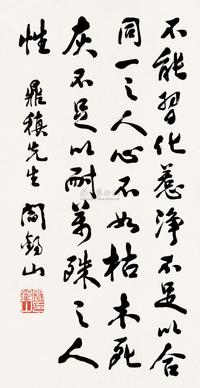 不能習化惹净不足以合
同一之人心不如枯木死
灰不足以耐万殊之人
性
鼎穎先生 閻錫山